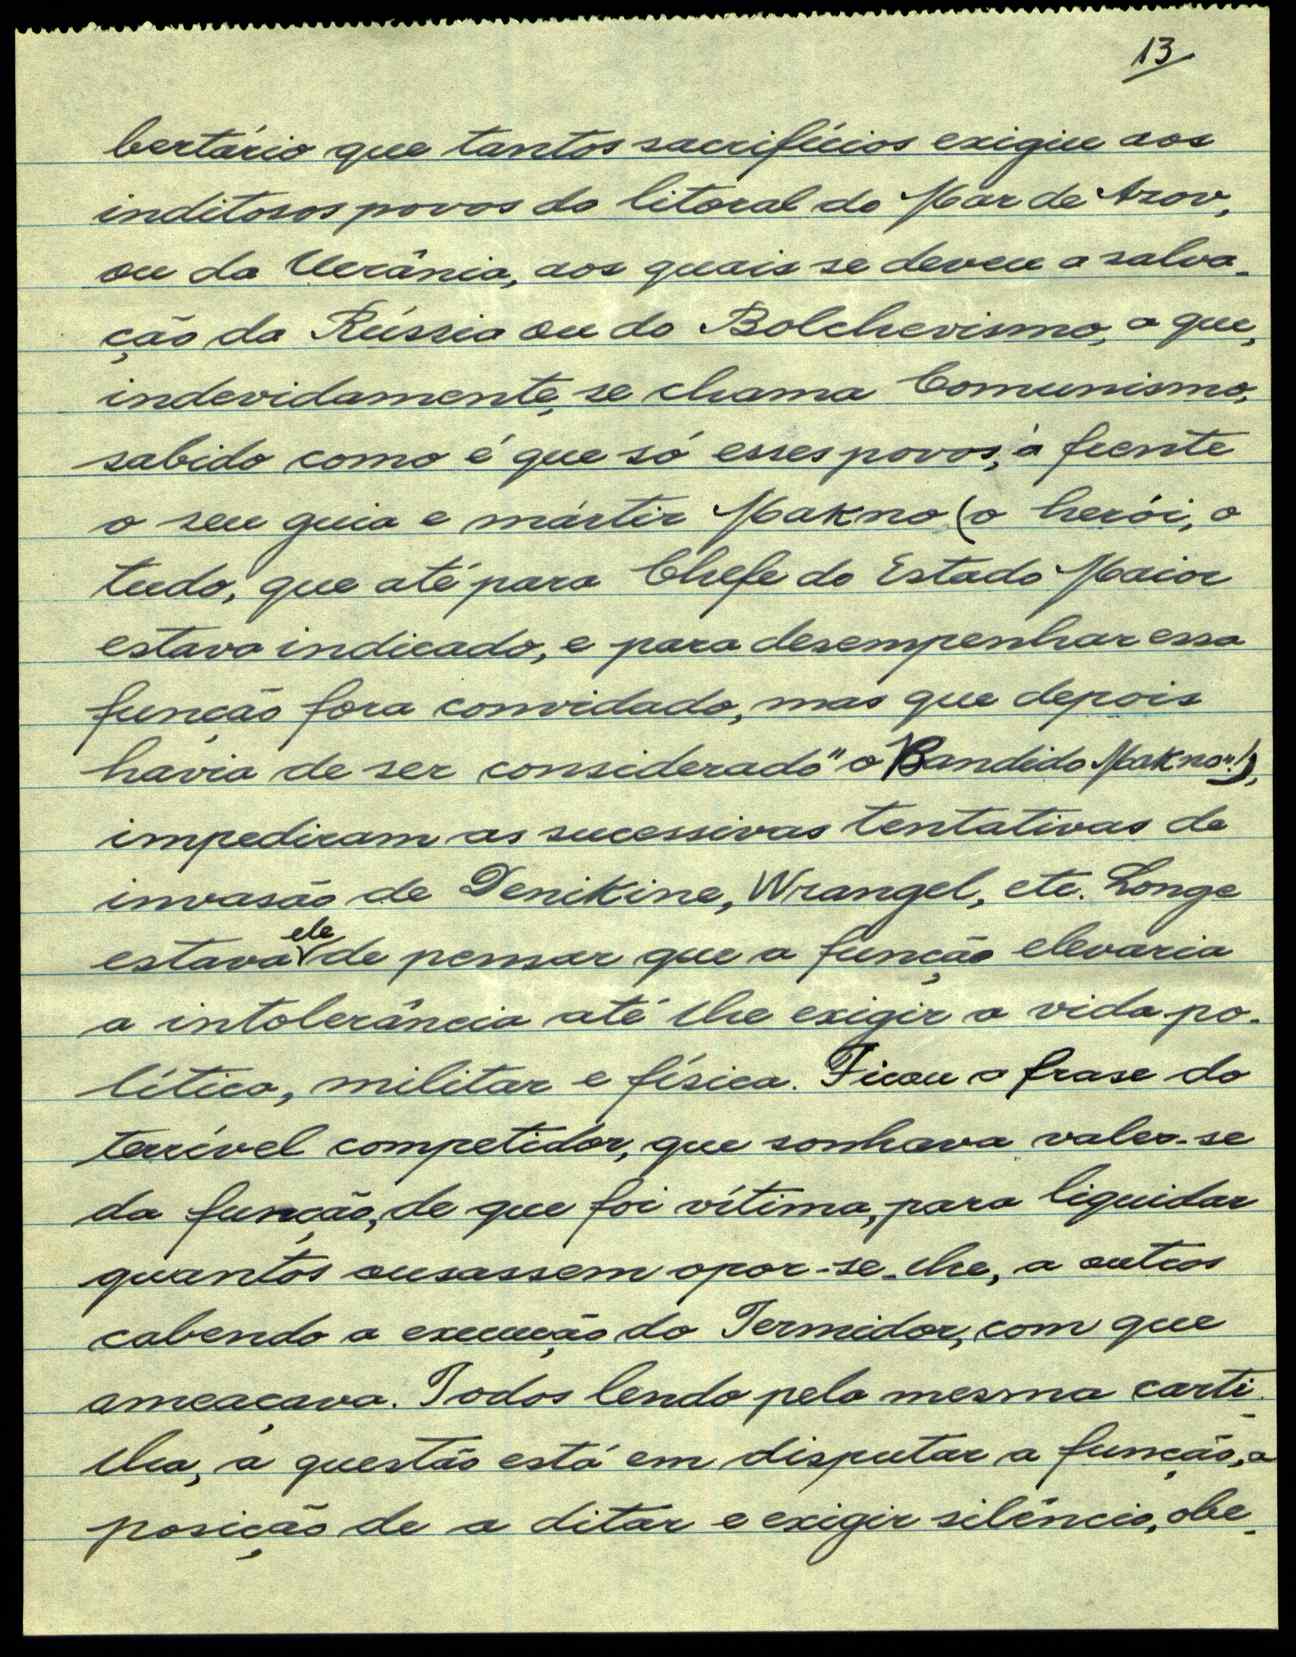 13
bertário que tantos sacrifícios exigiu aos
inditosos povos do litoral do Mar de Azov,
ou da Ucrânia, aos quais se deveu a salva-
ção da Rússia ou do Bolchevismo, a que,
indevidamente, se chama Comunismo,
sabido como é que só esses povos, à frente
o seu guia e mártir Makno (o herói, o
tudo, que até para Chefe do Estado Maior
estava indicado, e para desempenhar essa
função fora convidado, mas que depois
havia de ser considerado "o Bandido Makno"!),
impediram as sucessivas tentativas de
invasão de Denikine, Wrangel, etc. Longe
estava ele de pensar que a função elevaria
a intolerância até lhe exigir a vida po-
lítica, militar e física. Ficou a frase do
terrível competidor, que sonhava valer-se
da função, de que foi vítima, para liquidar
quantos ousassem opor-se-lhe, a outros
cabendo a execução do Termidor, com que
ameaçava. Todos lendo pela mesma carti-
lha, a questão está em disputar a função, a
posição de a ditar e exigir silêncio, obe-